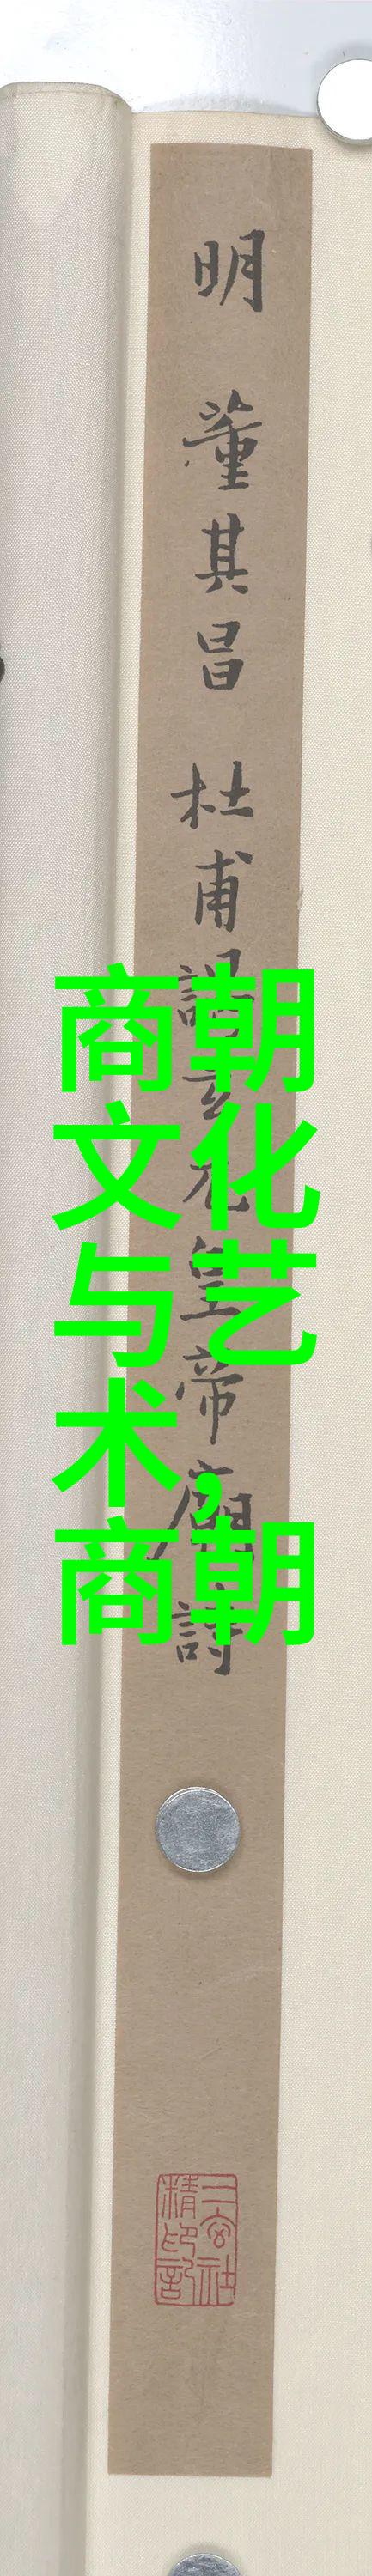 明 董其昌 杜甫謁玄元皇帝廟詩
商朝
文化
与艺
术,
商朝